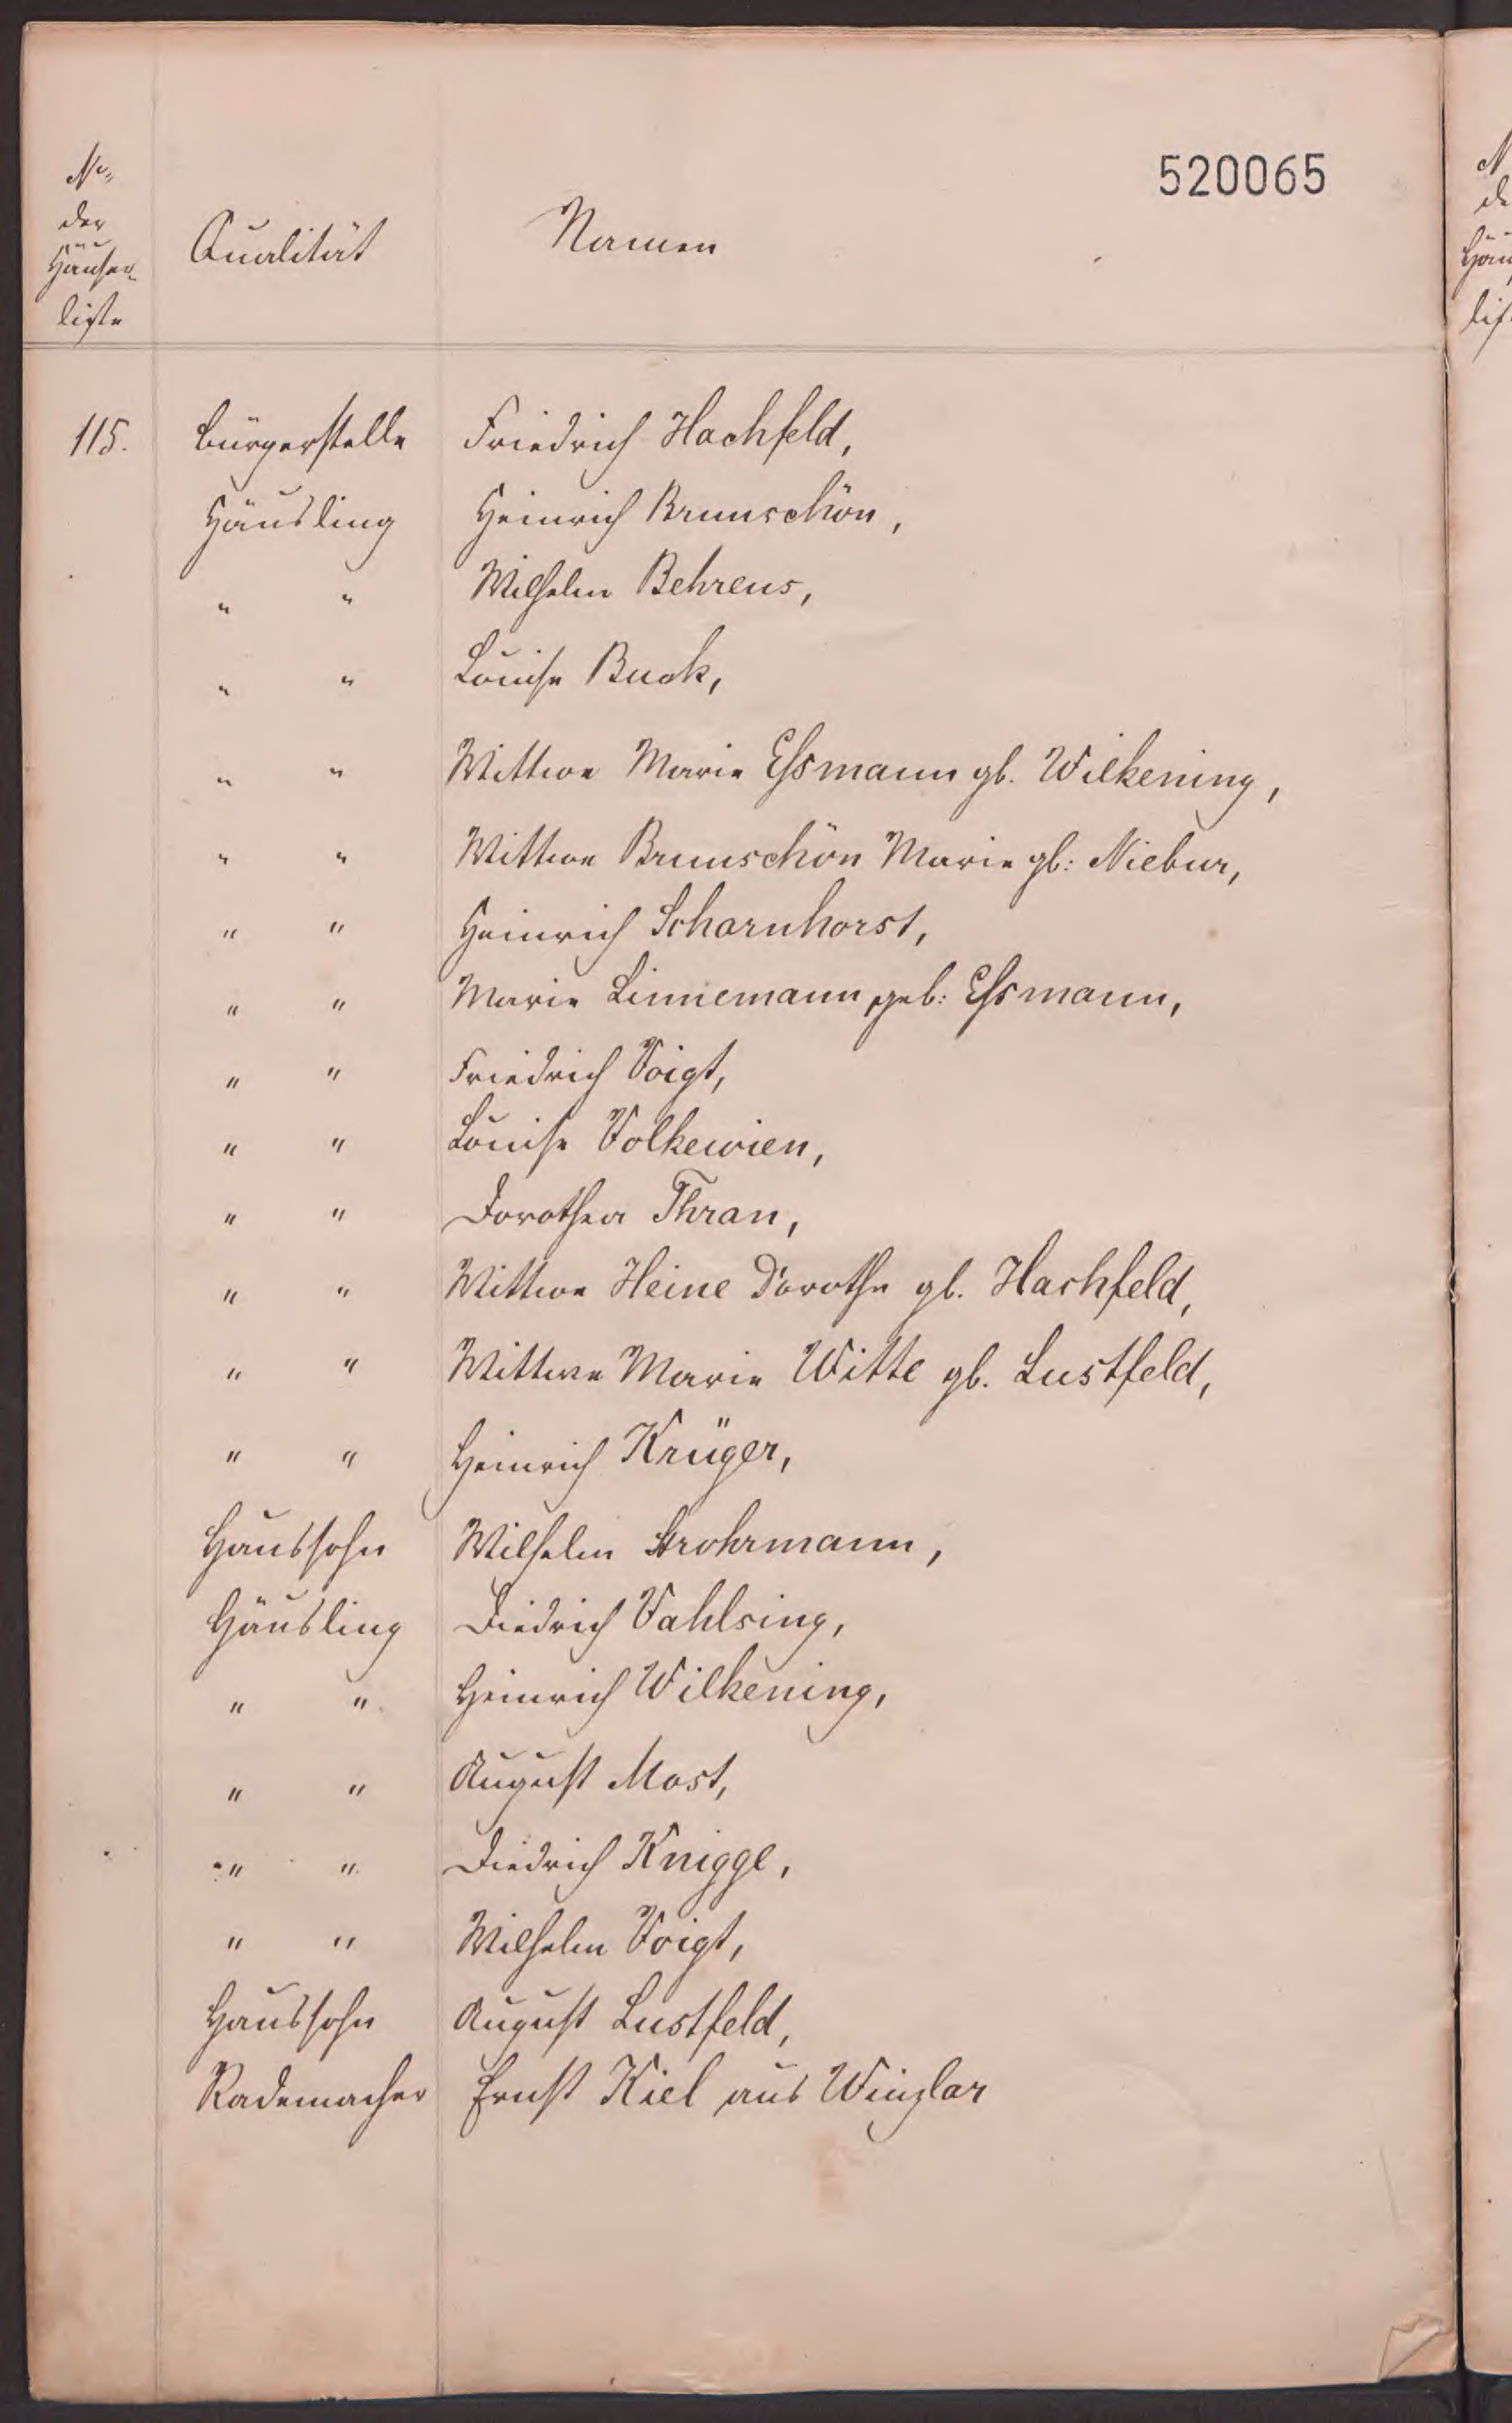 520065
No
der
Häuser-
liste
Qualität
Namen
115. Bürgerstelle Friedrich Hachfeld,
Häusling Heinrich Brunschön,
" " Wilhelm Behrens,
" " Louise Buck,
" " Wittwe Marie Essmann gb. Wilkening,
" " Wittwe Brunschön Marie gb: Niebur,
" " Heinrich Scharnhorst,
" " Marie Linnemann, geb: Essmann,
" " Friedrich Voigt,
" " Louise Volkewien,
" " Dorothea Thran,
" " Wittwe Heine Dorothe gb. Hachfeld,
" " Wittwe Marie Witte gb. Lustfeld,
" " Heinrich Krüger,
Haussohn Wilhelm Strohrmann,
Häusling Diedrich Vahlsing,
" " Heinrich Wilkening,
" " August Most,
" " Diedrich Knigge,
" " Wilhelm Voigt,
Haussohn August Lustfeld,
Rademacher Ernst Kiel aus Winzlar